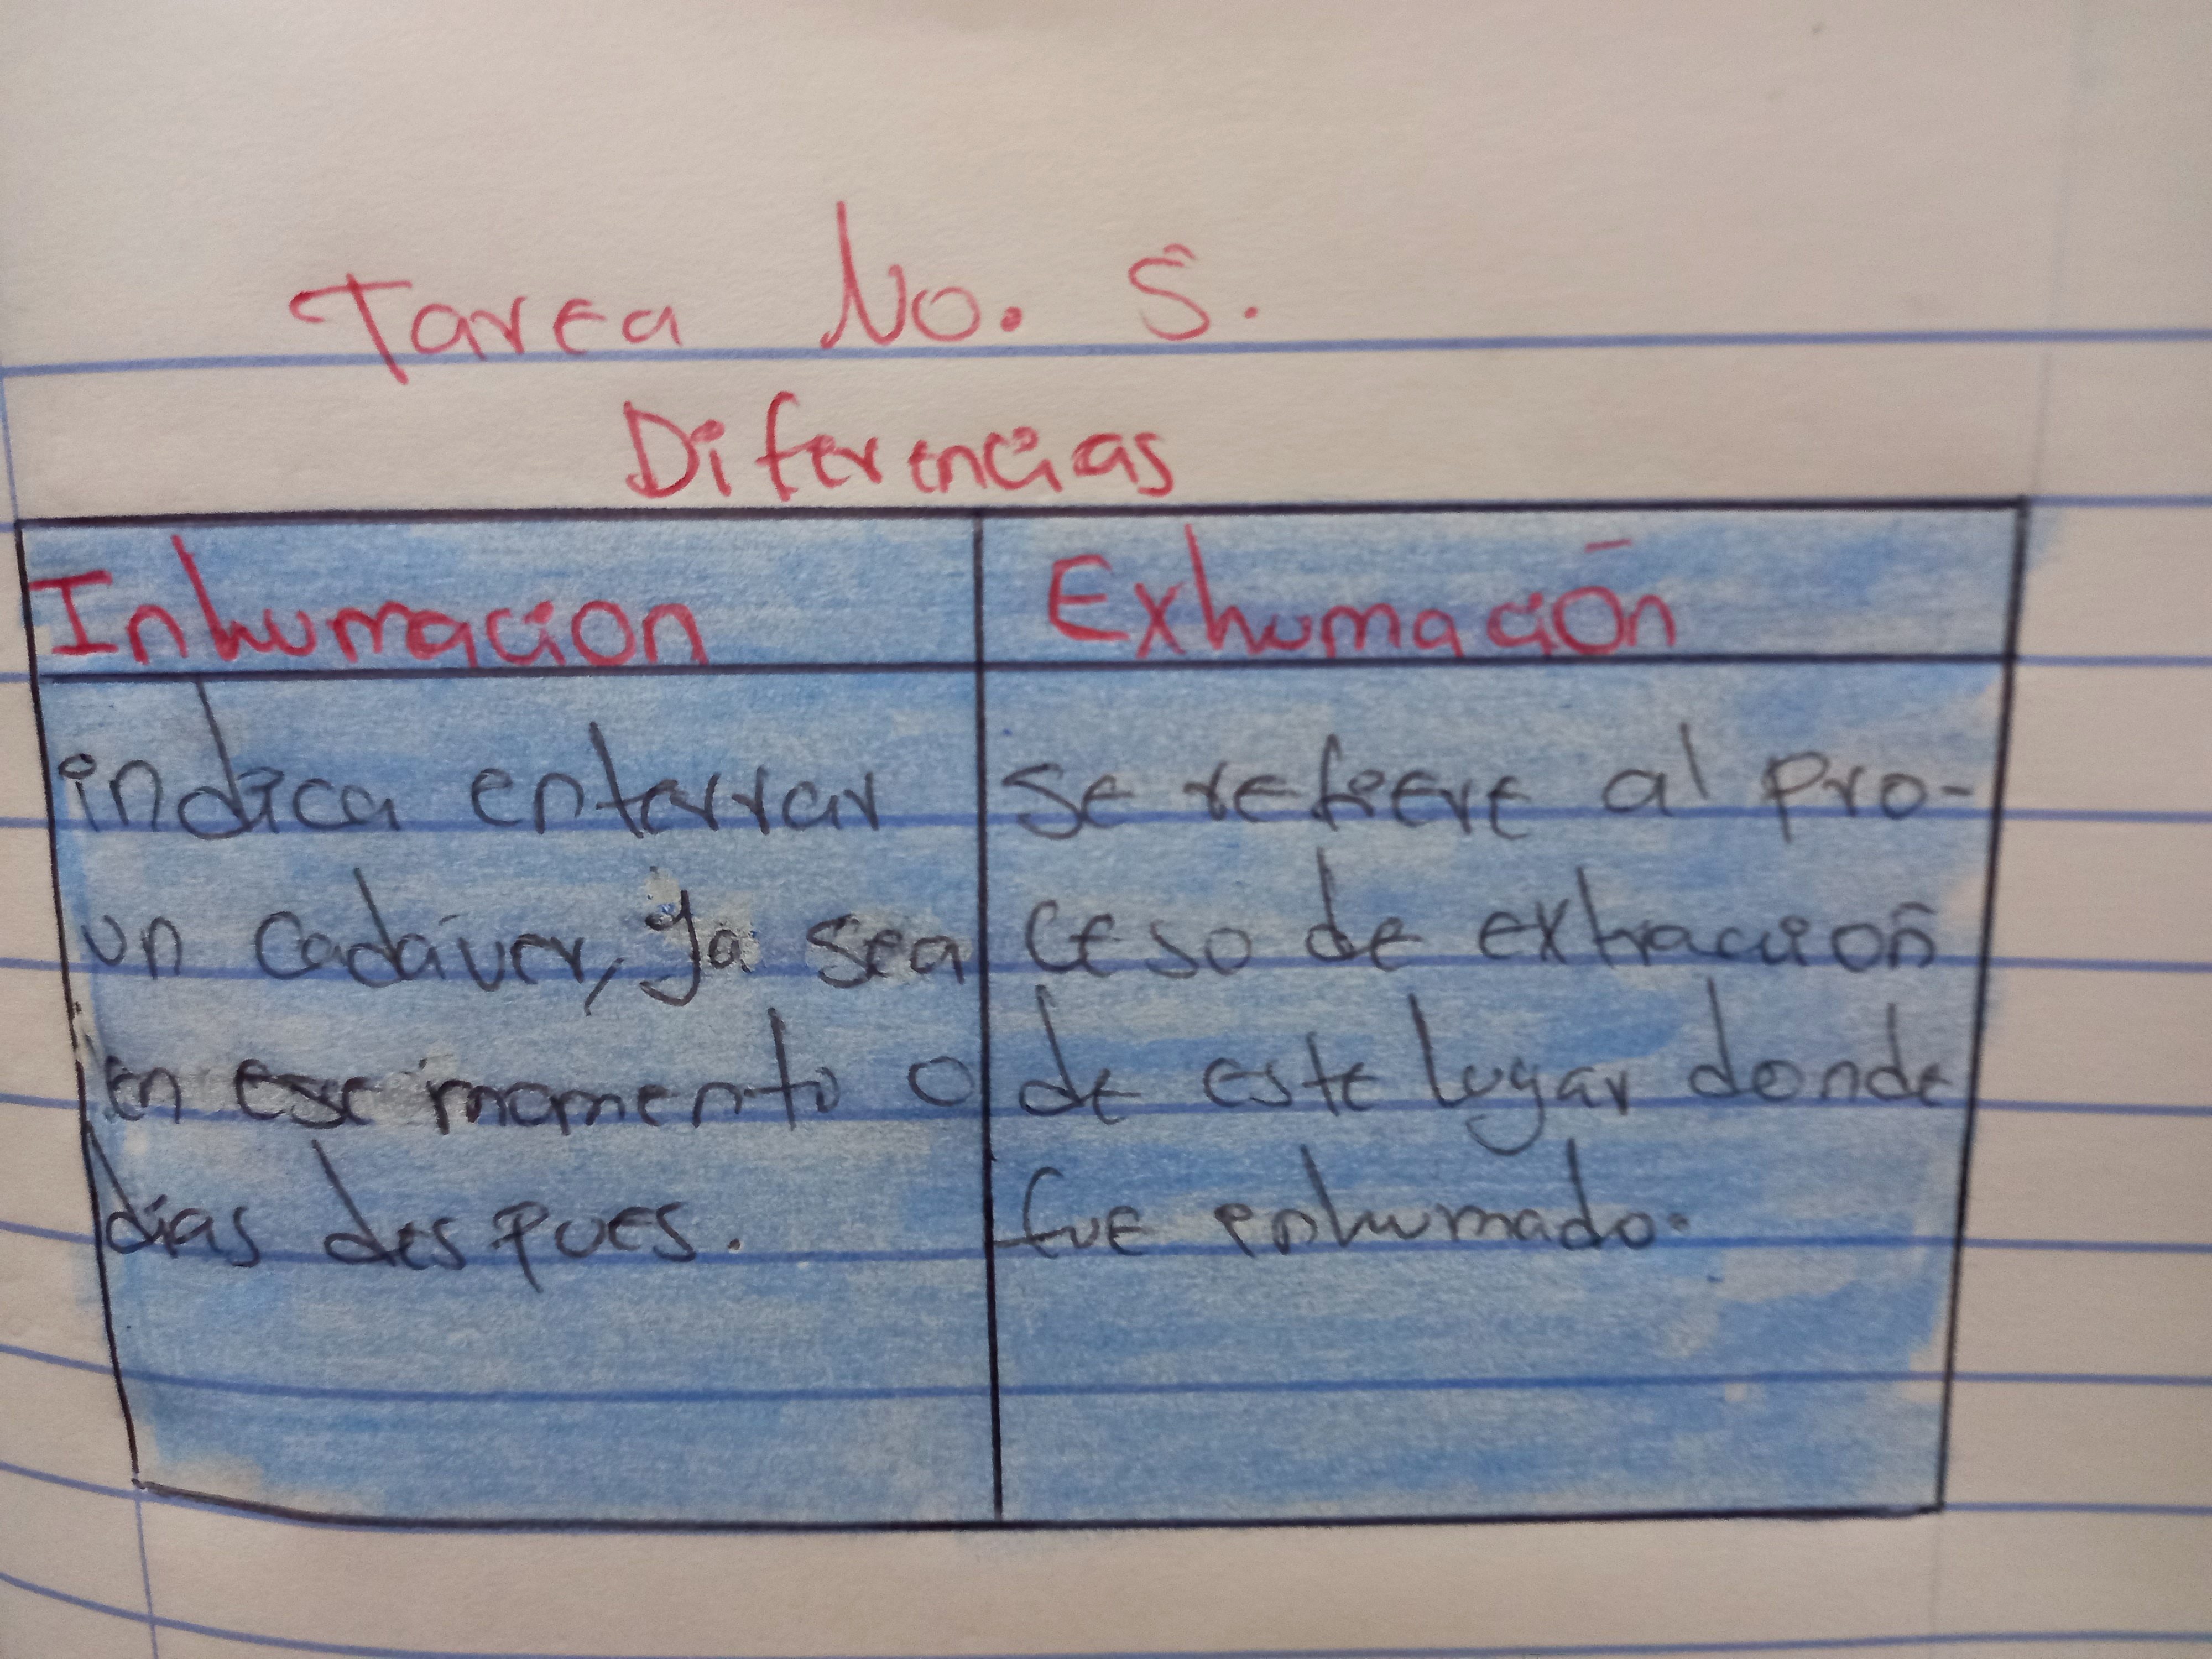 Tarea No. 5.
Diferencias
Inhumacion
indica enterrar
un cadáver, ya sea
en ese momento o
días despues.
Exhumación
se refiere al pro-
ceso de extracción
de este lugar donde
fue enhumado.